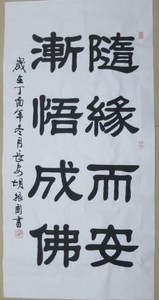 隨緣而安
漸悟成佛
歲在丁酉年冬月長安胡振國書